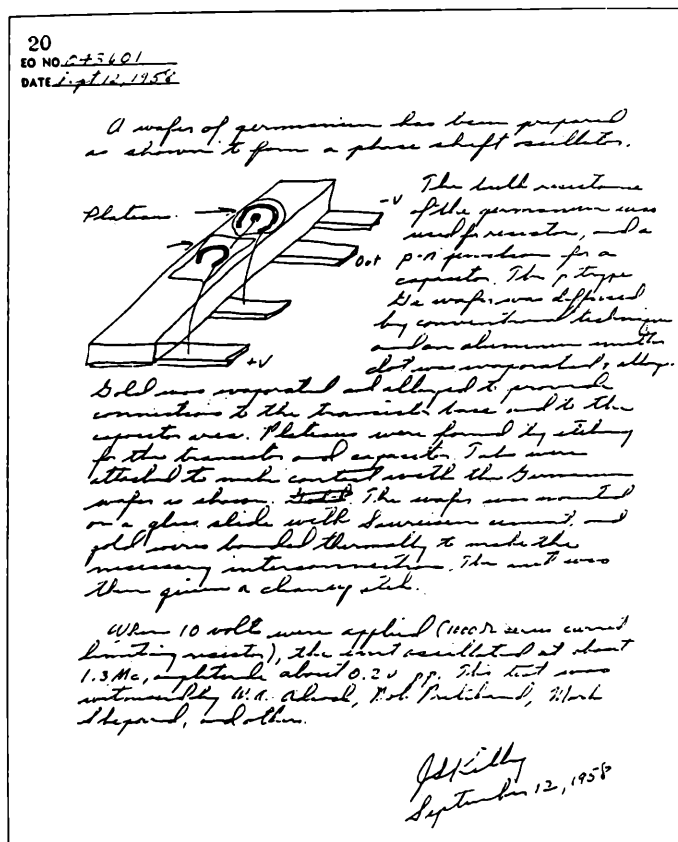 20
EO NO. C45601
DATE Sept 12, 1958
A wafer of germanium has been prepared
as shown to form a phase shift oscillator.
Plateau
-V
Out
+V
The bulk resistance
of the germanium was
used for resistor, and a
p-n junction for a
capacitor. The p type
Ge wafer was diffused
by conventional technique
and an aluminum emitter
dot was evaporated & alloyed.
Gold was evaporated and alloyed to provide
connections to the transistor base and to the
capacitor area. Plateaus were formed by etching
for the transistor and capacitor. Tabs were
attached to make contact with the Germanium
wafer as shown. The wafer was mounted
on a glass slide with Sauereisen cement, and
gold wires bonded thermally to make the
necessary interconnections. The unit was
then given a cleanup etch.
When 10 volts were applied (1000Ω series current
limiting resistor), the unit oscillated at about
1.3 Mc, amplitude about 0.2v pp. This test was
witnessed by W.A. Adcock, Bob Pritchard, Mark
Shepard, and others.
JS Kilby
September 12, 1958